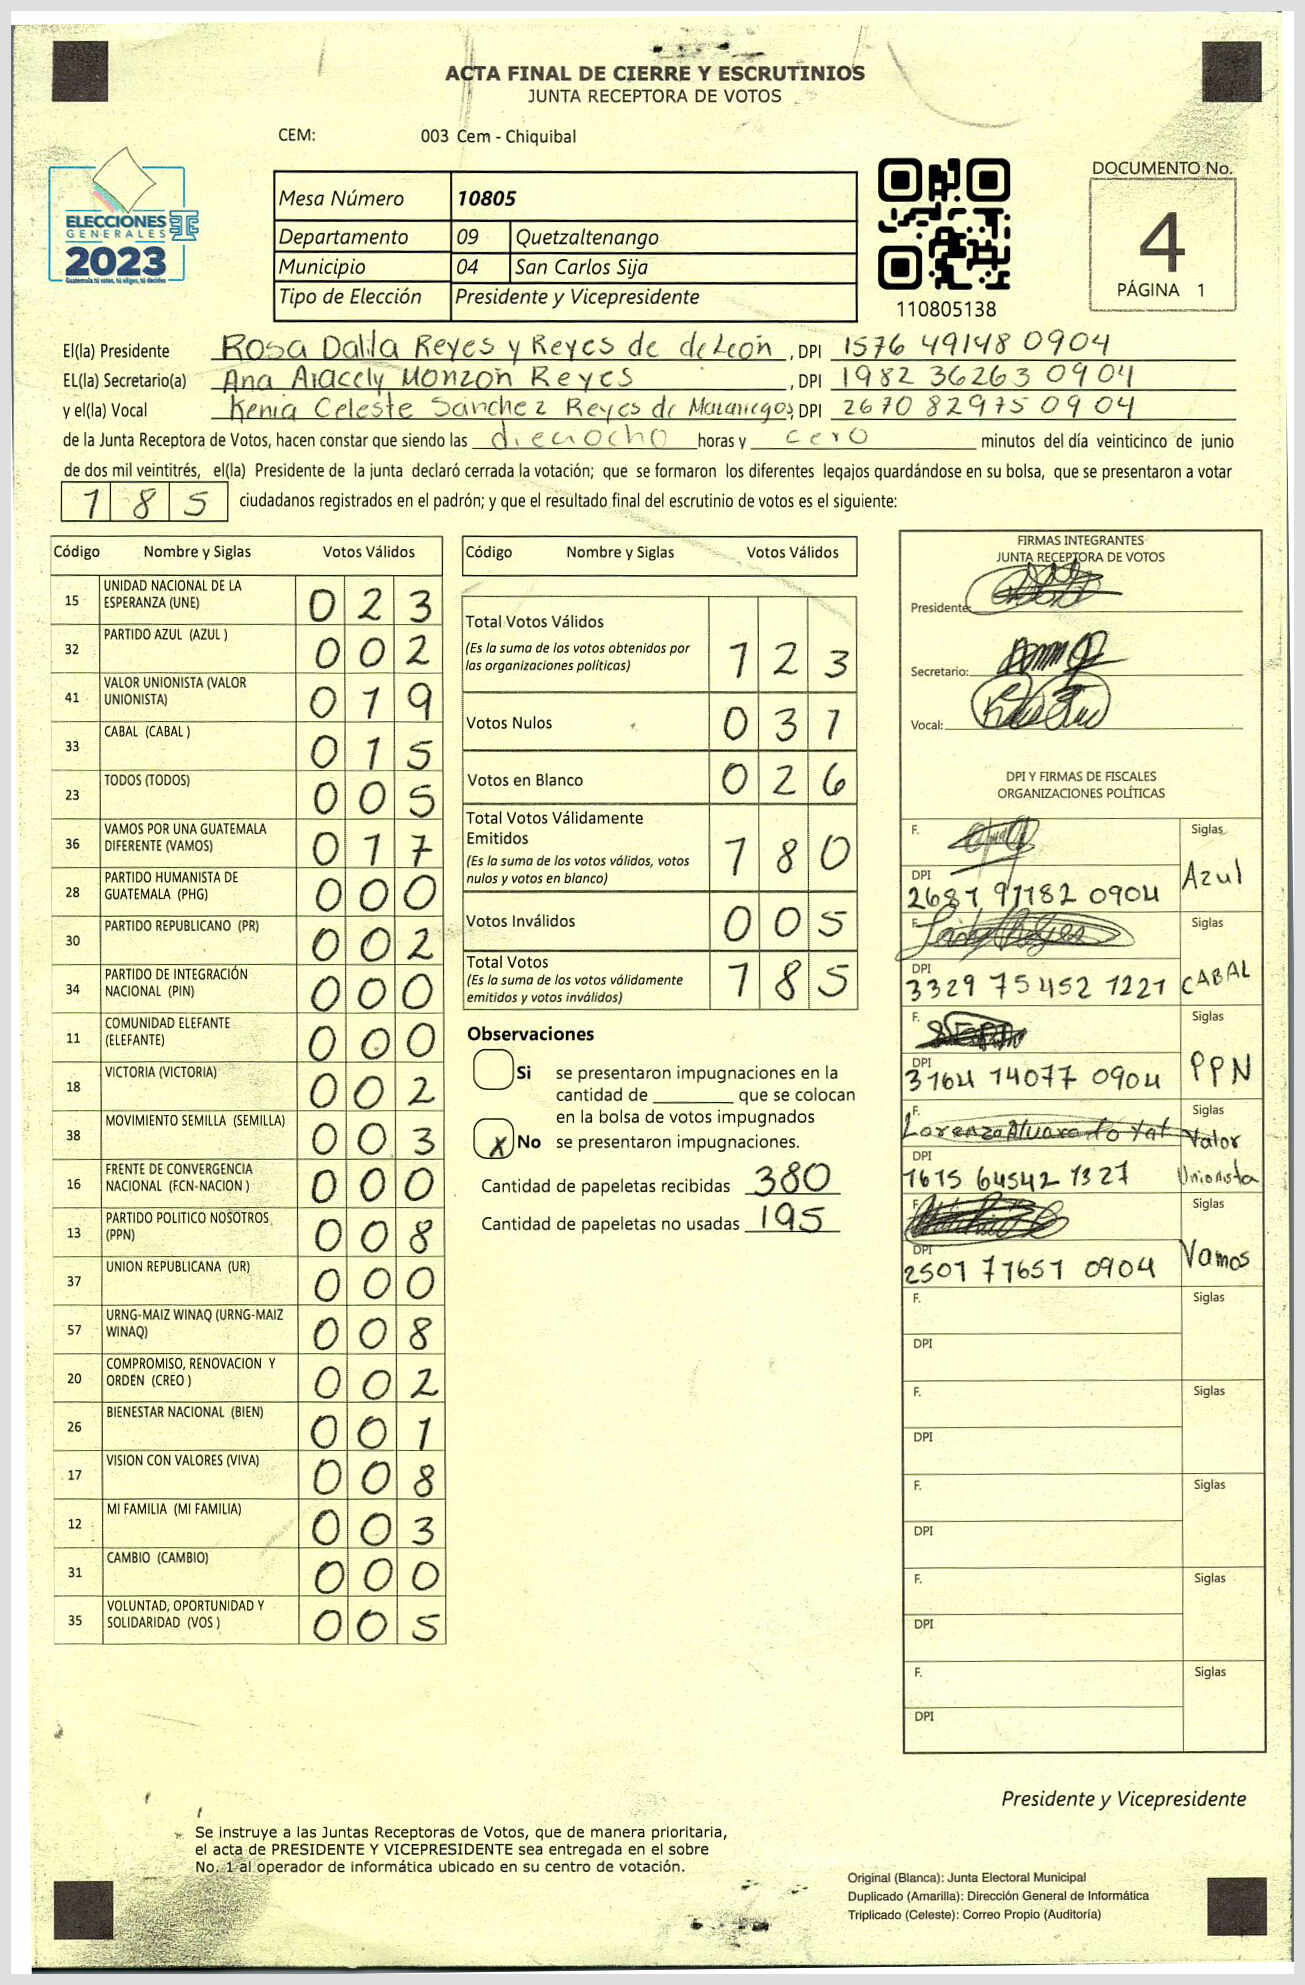 ACTA FINAL DE CIERRE Y ESCRUTINIOS
JUNTA RECEPTORA DE VOTOS
CEM: 003 Cem - Chiquibal
ELECCIONES
GENERALES
2023
Guatemala tú votas, tú eliges, tú decides
Mesa Número 10805
Departamento 09 Quetzaltenango
Municipio 04 San Carlos Sija
Tipo de Elección Presidente y Vicepresidente
110805138
DOCUMENTO No.
4
PÁGINA 1
El(la) Presidente Rosa Dalila Reyes y Reyes de deLeón , DPI 1576 49148 0904
EL(la) Secretario(a) Ana Aracely Monzon Reyes , DPI 1982 36263 0904
y el(la) Vocal Kenia Celeste Sánchez Reyes de , DPI 2670 82975 0904
de la Junta Receptora de Votos, hacen constar que siendo las dieciocho horas y cero minutos del día veinticinco de junio
de dos mil veintitrés, el(la) Presidente de la junta declaró cerrada la votación; que se formaron los diferentes legajos guardándose en su bolsa, que se presentaron a votar
185 ciudadanos registrados en el padrón; y que el resultado final del escrutinio de votos es el siguiente:
Código Nombre y Siglas Votos Válidos
15 UNIDAD NACIONAL DE LA ESPERANZA (UNE) 023
32 PARTIDO AZUL (AZUL ) 002
41 VALOR UNIONISTA (VALOR UNIONISTA) 019
33 CABAL (CABAL ) 015
23 TODOS (TODOS) 005
36 VAMOS POR UNA GUATEMALA DIFERENTE (VAMOS) 017
28 PARTIDO HUMANISTA DE GUATEMALA (PHG) 000
30 PARTIDO REPUBLICANO (PR) 002
34 PARTIDO DE INTEGRACIÓN NACIONAL (PIN) 000
11 COMUNIDAD ELEFANTE (ELEFANTE) 000
18 VICTORIA (VICTORIA) 002
38 MOVIMIENTO SEMILLA (SEMILLA) 003
16 FRENTE DE CONVERGENCIA NACIONAL (FCN-NACION ) 000
13 PARTIDO POLITICO NOSOTROS (PPN) 008
37 UNION REPUBLICANA (UR) 000
57 URNG-MAIZ WINAQ (URNG-MAIZ WINAQ) 008
20 COMPROMISO, RENOVACION Y ORDEN (CREO ) 002
26 BIENESTAR NACIONAL (BIEN) 001
17 VISION CON VALORES (VIVA) 008
12 MI FAMILIA (MI FAMILIA) 003
31 CAMBIO (CAMBIO) 000
35 VOLUNTAD, OPORTUNIDAD Y SOLIDARIDAD (VOS ) 005
Código Nombre y Siglas Votos Válidos
Total Votos Válidos
(Es la suma de los votos obtenidos por las organizaciones políticas) 123
Votos Nulos 031
Votos en Blanco 026
Total Votos Válidamente Emitidos
(Es la suma de los votos válidos, votos nulos y votos en blanco) 180
Votos Inválidos 005
Total Votos
(Es la suma de los votos válidamente emitidos y votos inválidos) 185
Observaciones
Si se presentaron impugnaciones en la
cantidad de ________ que se colocan
en la bolsa de votos impugnados
X No se presentaron impugnaciones.
Cantidad de papeletas recibidas 380
Cantidad de papeletas no usadas 195
FIRMAS INTEGRANTES
JUNTA RECEPTORA DE VOTOS
Presidente:
Secretario:
Vocal:
DPI Y FIRMAS DE FISCALES
ORGANIZACIONES POLÍTICAS
F. Siglas
DPI Azul
2687 91182 0904
F. Siglas
DPI
3329 75452 1221 CABAL
F. Siglas
DPI PPN
3164 14077 0904
F. Siglas
Lorenzo Alvarado Yat Valor
DPI
1615 64542 1327 Unionista
F. Siglas
DPI Vamos
2501 77651 0904
F. Siglas
DPI
F. Siglas
DPI
F. Siglas
DPI
F. Siglas
DPI
F. Siglas
DPI
Presidente y Vicepresidente
Se instruye a las Juntas Receptoras de Votos, que de manera prioritaria,
el acta de PRESIDENTE Y VICEPRESIDENTE sea entregada en el sobre
No. 1 al operador de informática ubicado en su centro de votación.
Original (Blanca): Junta Electoral Municipal
Duplicado (Amarilla): Dirección General de Informática
Triplicado (Celeste): Correo Propio (Auditoría)